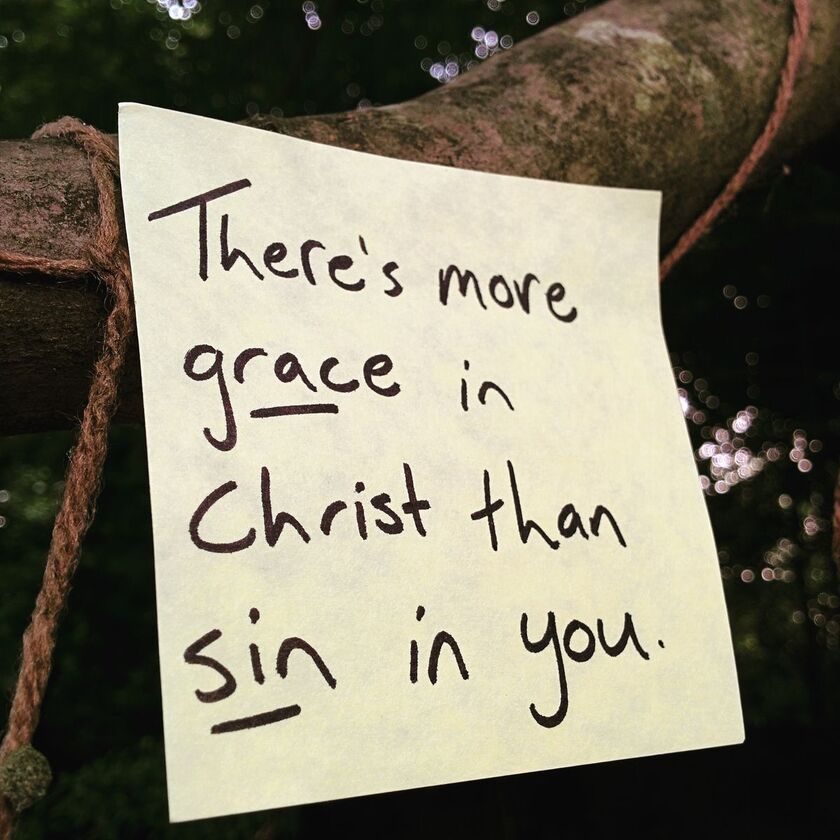 There's more
grace in
Christ than
sin in you.